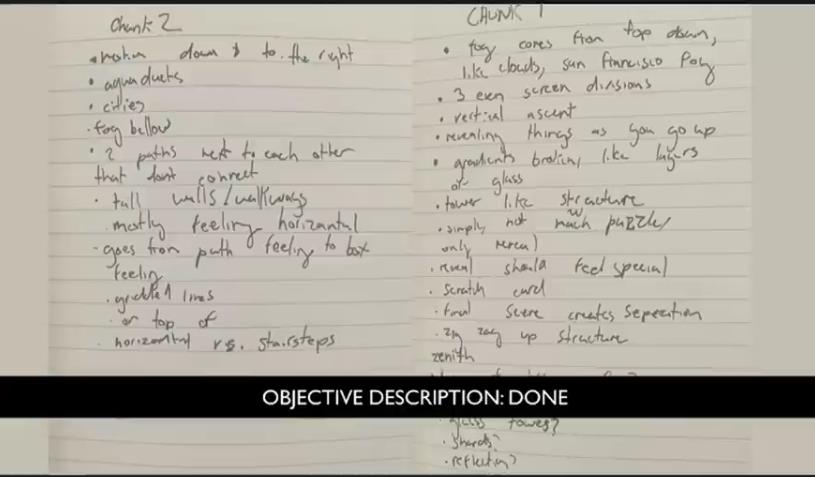 Chunk 2
• motion down & to the right
• aquaducts
• cities
• fog bellow
• 2 paths next to each other
that dont connect
• tall walls/walkways
• mostly feeling horizantal
• goes from path feeling to box
feeling
• lines
• on top of
• horizontal vs. stairsteps
CHUNK 1
• fog comes from top down,
like clouds, san francisco fog
• 3 even screen divisions
• vertical ascent
• revealing things as you go up
• gradients broken, like layers
of glass
• tower like structure
• simply not much puzzle/
only reveal
• reveal should feel special
• scratch card
• final scene creates seperation
• zig zag up structure
zenith
OBJECTIVE DESCRIPTION: DONE
glass towes?
• shards?
• reflecting?